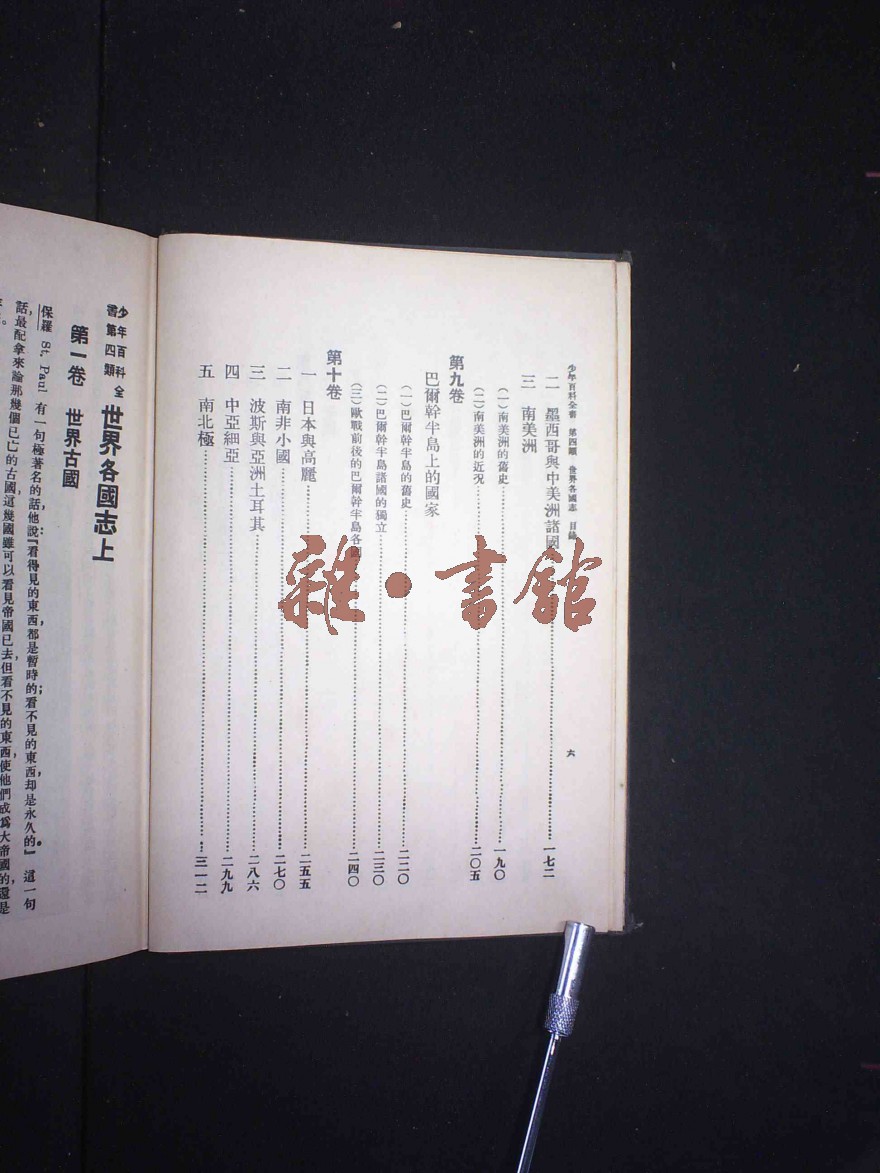 少年百科全書 第四類 世界各國志 目錄 六
二 墨西哥與中美洲諸國……一七二
三 南美洲
(一)南美洲的舊史……一九〇
(二)南美洲的近況……二〇五
第九卷
巴爾幹半島上的國家
(一)巴爾幹半島的舊史……二二〇
(二)巴爾幹半島諸國的獨立……二三〇
(三)歐戰前後的巴爾幹半島各國……二四〇
第十卷
一 日本與高麗……二五五
二 南非小國……二七〇
三 波斯與亞洲土耳其……二八六
四 中亞細亞……二九九
五 南北極……三一二
少年百科全
書第四類
世界各國志上
第一卷 世界古國
保羅 St. Paul 有一句極著名的話他說「看得見的東西,都是暫時的看不見的東西却是永久的。」這一句
話,最配拿來論那幾個已亡的古國這幾國雖可以看見帝國已去但看不見的東西使他們成爲大帝國的還是
雜·書館